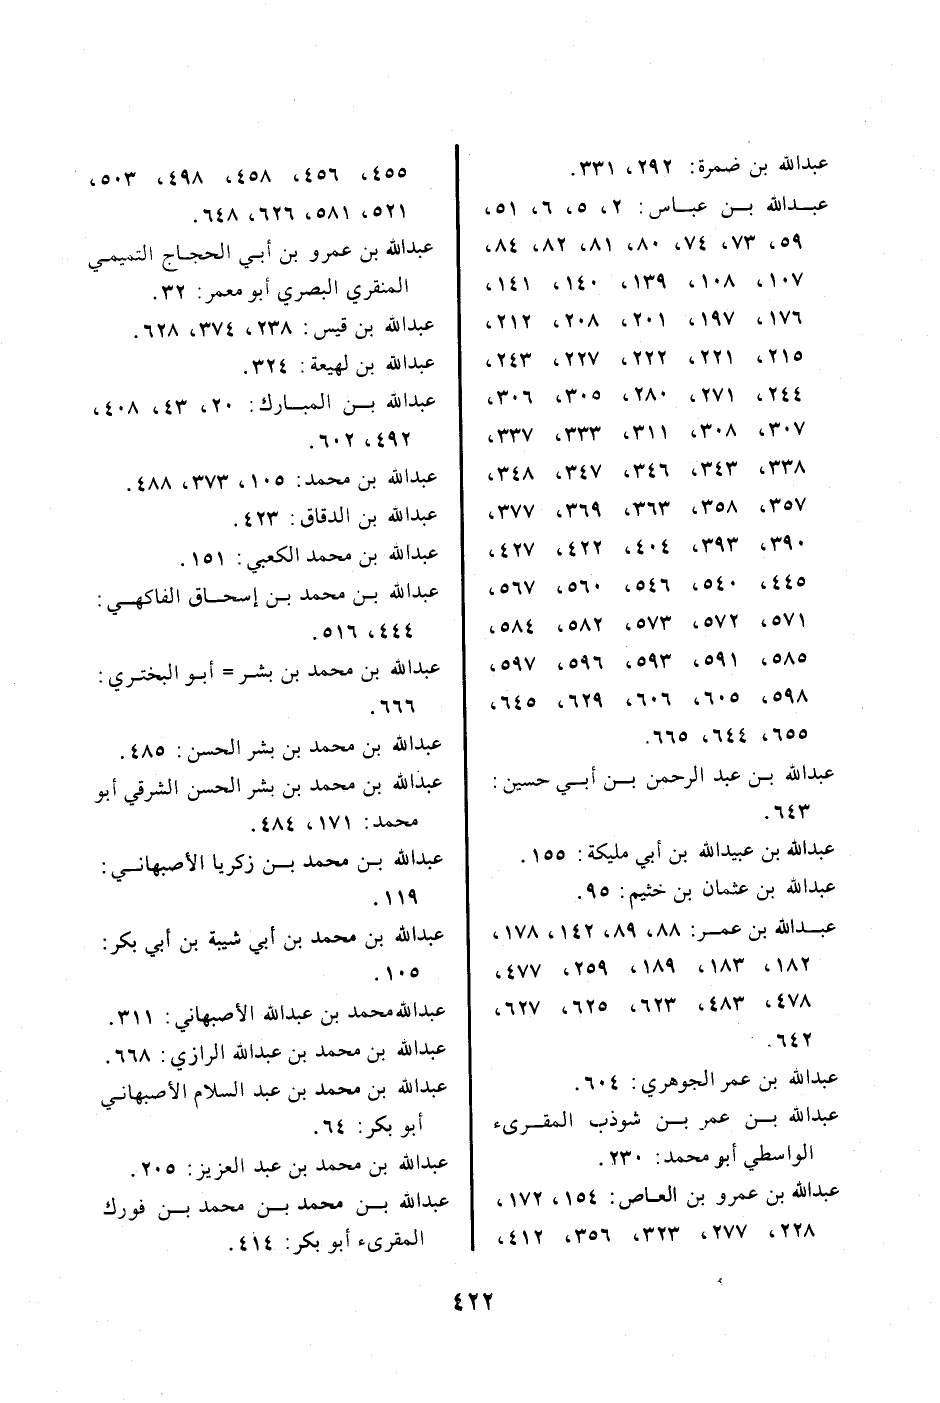 عبدالله بن ضمرة: ٢٩٢، ٣٣١.
عبـدالله بـن عبـاس: ٢، ٥، ٦، ٥١،
٥٩، ٧٣، ٧٤، ٨٠، ٨١، ٨٢، ٨٤،
١٠٧، ١٠٨، ١٣٩، ١٤٠، ١٤١،
١٧٦، ١٩٧، ٢٠١، ٢٠٨، ٢١٢،
٢١٥، ٢٢١، ٢٢٢، ٢٢٧، ٢٤٣،
٢٤٤، ٢٧١، ٢٨٠، ٣٠٥، ٣٠٦،
٣٠٧، ٣٠٨، ٣١١، ٣٣٣، ٣٣٧،
٣٣٨، ٣٤٣، ٣٤٦، ٣٤٧، ٣٤٨،
٣٥٧، ٣٥٨، ٣٦٣، ٣٦٩، ٣٧٧،
٣٩٠، ٣٩٣، ٤٠٤، ٤٢٢، ٤٢٧،
٤٤٥، ٥٤٠، ٥٤٦، ٥٦٠، ٥٦٧،
٥٧١، ٥٧٢، ٥٧٣، ٥٨٢، ٥٨٤،
٥٨٥، ٥٩١، ٥٩٣، ٥٩٦، ٥٩٧،
٥٩٨، ٦٠٥، ٦٠٦، ٦٢٩، ٦٤٥،
٦٥٥، ٦٤٤، ٦٦٥.
عبدالله بـن عبد الرحمن بـن أبـي حسين:
٦٤٣.
عبدالله بن عبيدالله بن أبي مليكة: ١٥٥.
عبدالله بن عثمان بن خثيم: ٩٥.
عبـدالله بن عمـر: ٨٨، ٨٩، ١٤٢، ١٧٨،
١٨٢، ١٨٣، ١٨٩، ٢٥٩، ٤٧٧،
٤٧٨، ٤٨٣، ٦٢٣، ٦٢٥، ٦٢٧،
٦٤٢.
عبدالله بن عمر الجوهري: ٦٠٤.
عبدالله بـن عمر بـن شوذب المقـرىء
الواسطي أبو محمد: ٢٣٠.
عبدالله بن عمرو بن العـاص: ١٥٤، ١٧٢،
٢٢٨، ٢٧٧، ٣٢٣، ٣٥٦، ٤١٢،
٤٥٥، ٤٥٦، ٤٥٨، ٤٩٨، ٥٠٣،
٥٢١، ٥٨١، ٦٢٦، ٦٤٨.
عبدالله بن عمرو بن أبـي الحجـاج التميمـي
المنقري البصري أبو معمر: ٣٢.
عبدالله بن قيس: ٢٣٨، ٣٧٤، ٦٢٨.
عبدالله بن لهيعة: ٣٢٤.
عبدالله بـن المبـارك: ٢٠، ٤٣، ٤٠٨،
٤٩٢، ٦٠٢.
عبدالله بن محمد: ١٠٥، ٣٧٣، ٤٨٨.
عبدالله بن الدقاق: ٤٢٣.
عبدالله بن محمد الكعبي: ١٥١.
عبدالله بـن محمد بـن إسحـاق الفاكهـي:
٤٤٤، ٥١٦.
عبدالله بن محمد بن بشر = أبـو البختري:
٦٦٦.
عبدالله بن محمد بن بشر الحسن: ٤٨٥.
عبدالله بن محمد بن بشر الحسن الشرقي أبو
محمد: ١٧١، ٤٨٤.
عبدالله بـن محمد بـن زكريا الأصبهانـي:
١١٩.
عبدالله بن محمد بن أبي شيبة بن أبي بكر:
١٠٥.
عبدالله محمد بن عبدالله الأصبهاني: ٣١١.
عبدالله بن محمد بن عبدالله الرازي: ٦٦٨.
عبدالله بن محمد بن عبد السلام الأصبهاني
أبو بكر: ٦٤.
عبدالله بن محمد بن عبد العزيز: ٢٠٥.
عبدالله بـن محمد بـن محمد بـن فورك
المقرىء أبو بكر: ٤١٤.
٤٢٢